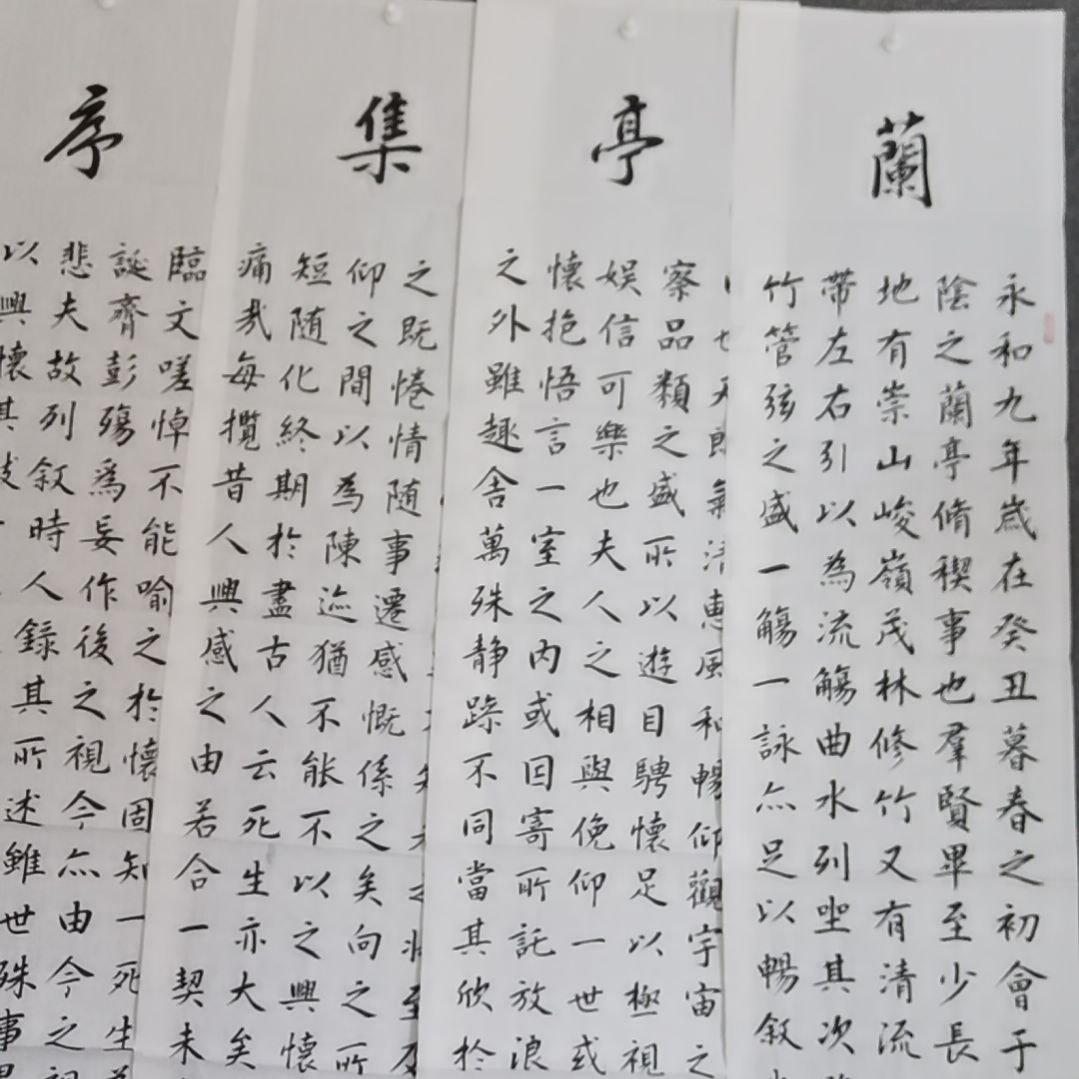 蘭
永和九年歲在癸丑暮春之初會于
陰之蘭亭脩稧事也羣賢畢至少長
地有崇山峻嶺茂林修竹又有清流
帶左右引以為流觴曲水列坐其次
竹管弦之盛一觴一詠亦足以暢叙
亭
也天朗氣清惠風和暢仰觀宇宙之
察品類之盛所以遊目騁懷足以極視
娛信可樂也夫人之相與俛仰一世或
懷抱悟言一室之内或因寄所託放浪
之外雖趣舍萬殊静躁不同當其欣於
集
之既惓情随事遷感慨係之矣向之所
仰之間以為陳迹猶不能不以之興懷
短随化終期於盡古人云死生亦大矣
痛哉每攬昔人興感之由若合一契未
序
臨文嗟悼不能喻之於懷固知一死生
誕齊彭殤爲妄作後之視今亦由今之
悲夫故列叙時人錄其所述雖世殊事
以興懷其